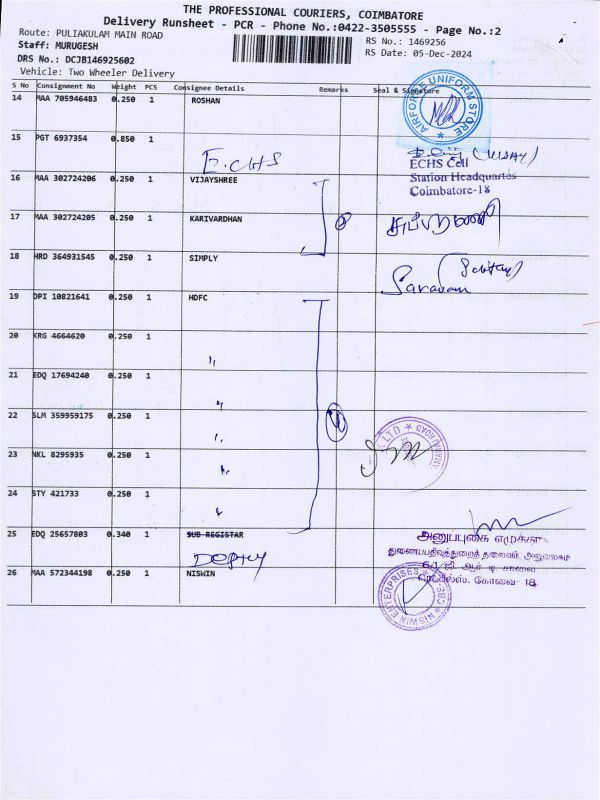 THE PROFESSIONAL COURIERS, COIMBATORE
Delivery Runsheet - PCR - Phone No.:0422-3505555 - Page No.:2
Route: PULIAKULAM MAIN ROAD
RS No.: 1469256
Staff: MURUGESH
RS Date: 05-Dec-2024
DRS No.: DCJB146925602
Vehicle: Two Wheeler Delivery
S No Consignment No Weight PCS Consignee Details Remarks Seal & Signature
14 MAA 705946483 0.250 1 ROSHAN
AIRFORCE UNIFORM STORE
15 PGT 6937354 0.850 1
E.CHS
ECHS Cell
Station Headquartes
Coimbatore-18
16 MAA 302724206 0.250 1 VIJAYSHREE
17 MAA 302724205 0.250 1 KARIVARDHAN
18 HRD 364931545 0.250 1 SIMPLY
19 DPI 10821641 0.250 1 HDFC
20 KRG 4664620 0.250 1 "
21 EDQ 17694240 0.250 1 "
22 SLM 359959175 0.250 1 "
23 NKL 8295935 0.250 1 "
24 STY 421733 0.250 1 "
25 EDQ 25657803 0.340 1 SUB REGISTAR
துணைபதிவுத்துறைத் தலைவர்
கோவை-18
26 MAA 572344198 0.250 1 NISWIN
NISWIN ENTERPRISES